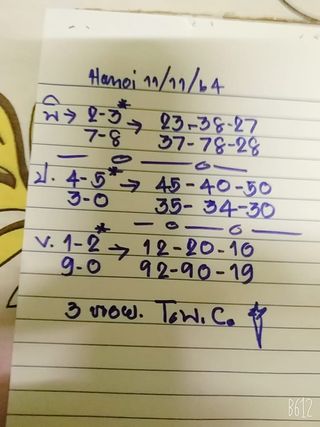 Hanoi 11/11/64
พิ → 2-3* → 23-38-27
7-8 37-78-28
ป. 4-5* → 45-40-50
3-0 35-34-30
V. 1-2* → 12-20-10
9-0 92-90-19
3 หอย. T.W.C.
B612